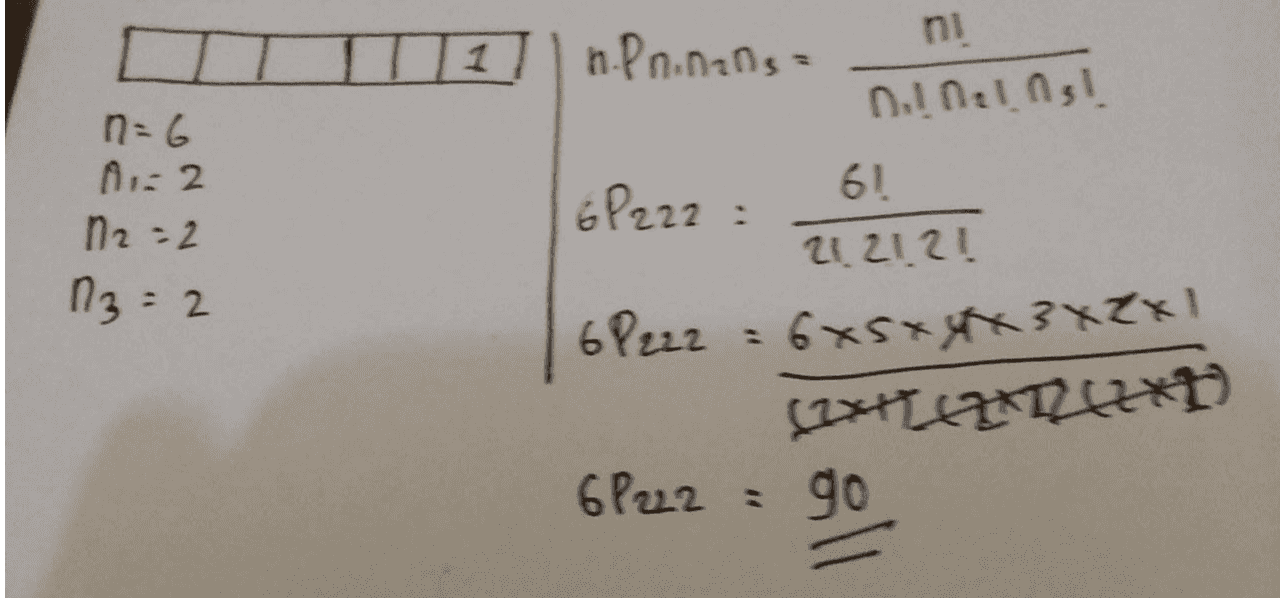 1
n=6
n1=2
n2=2
n3=2
n.Pn1n2n3=
n!
n1!n2!n3!
6P222:
6!
2!.2!.2!
6P222 = 6×5×4×3×2×1
(2×1)(2×1)(2×1)
6P222 = 90